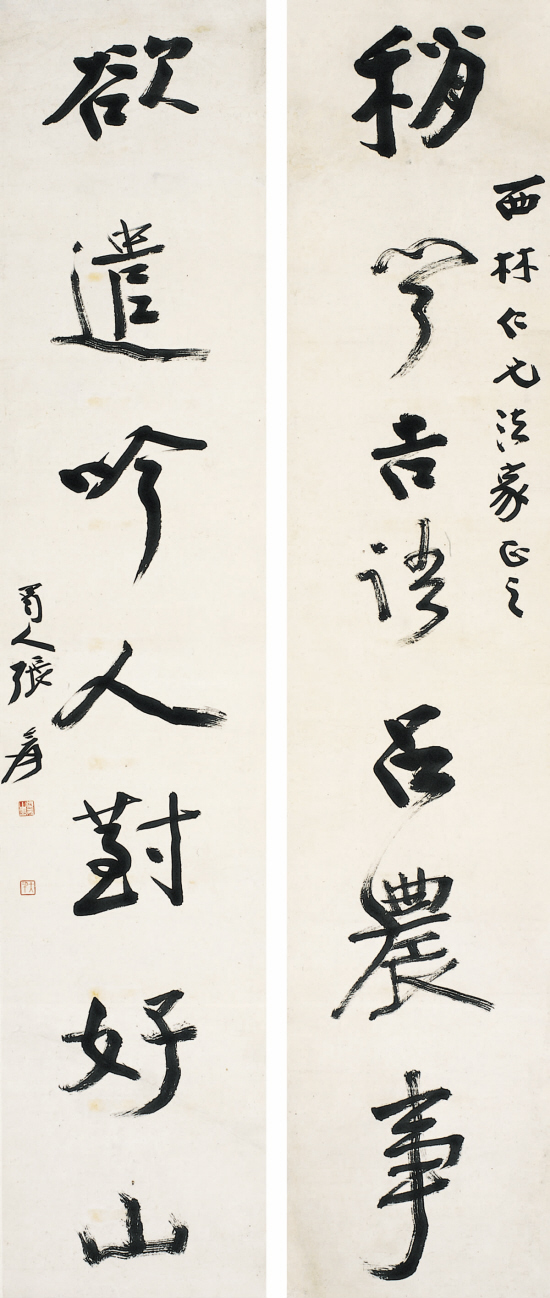 西林仁兄法家正之
稍聞吉語占農事
欲遣吟人對好山
蜀人張爰